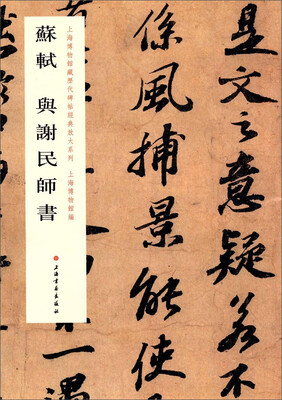 是文之意疑若不
係風捕景能使
不一遇
上海博物館藏歷代碑帖經典放大系列 上海博物館編
蘇軾 與謝民師書
上海書畫出版社